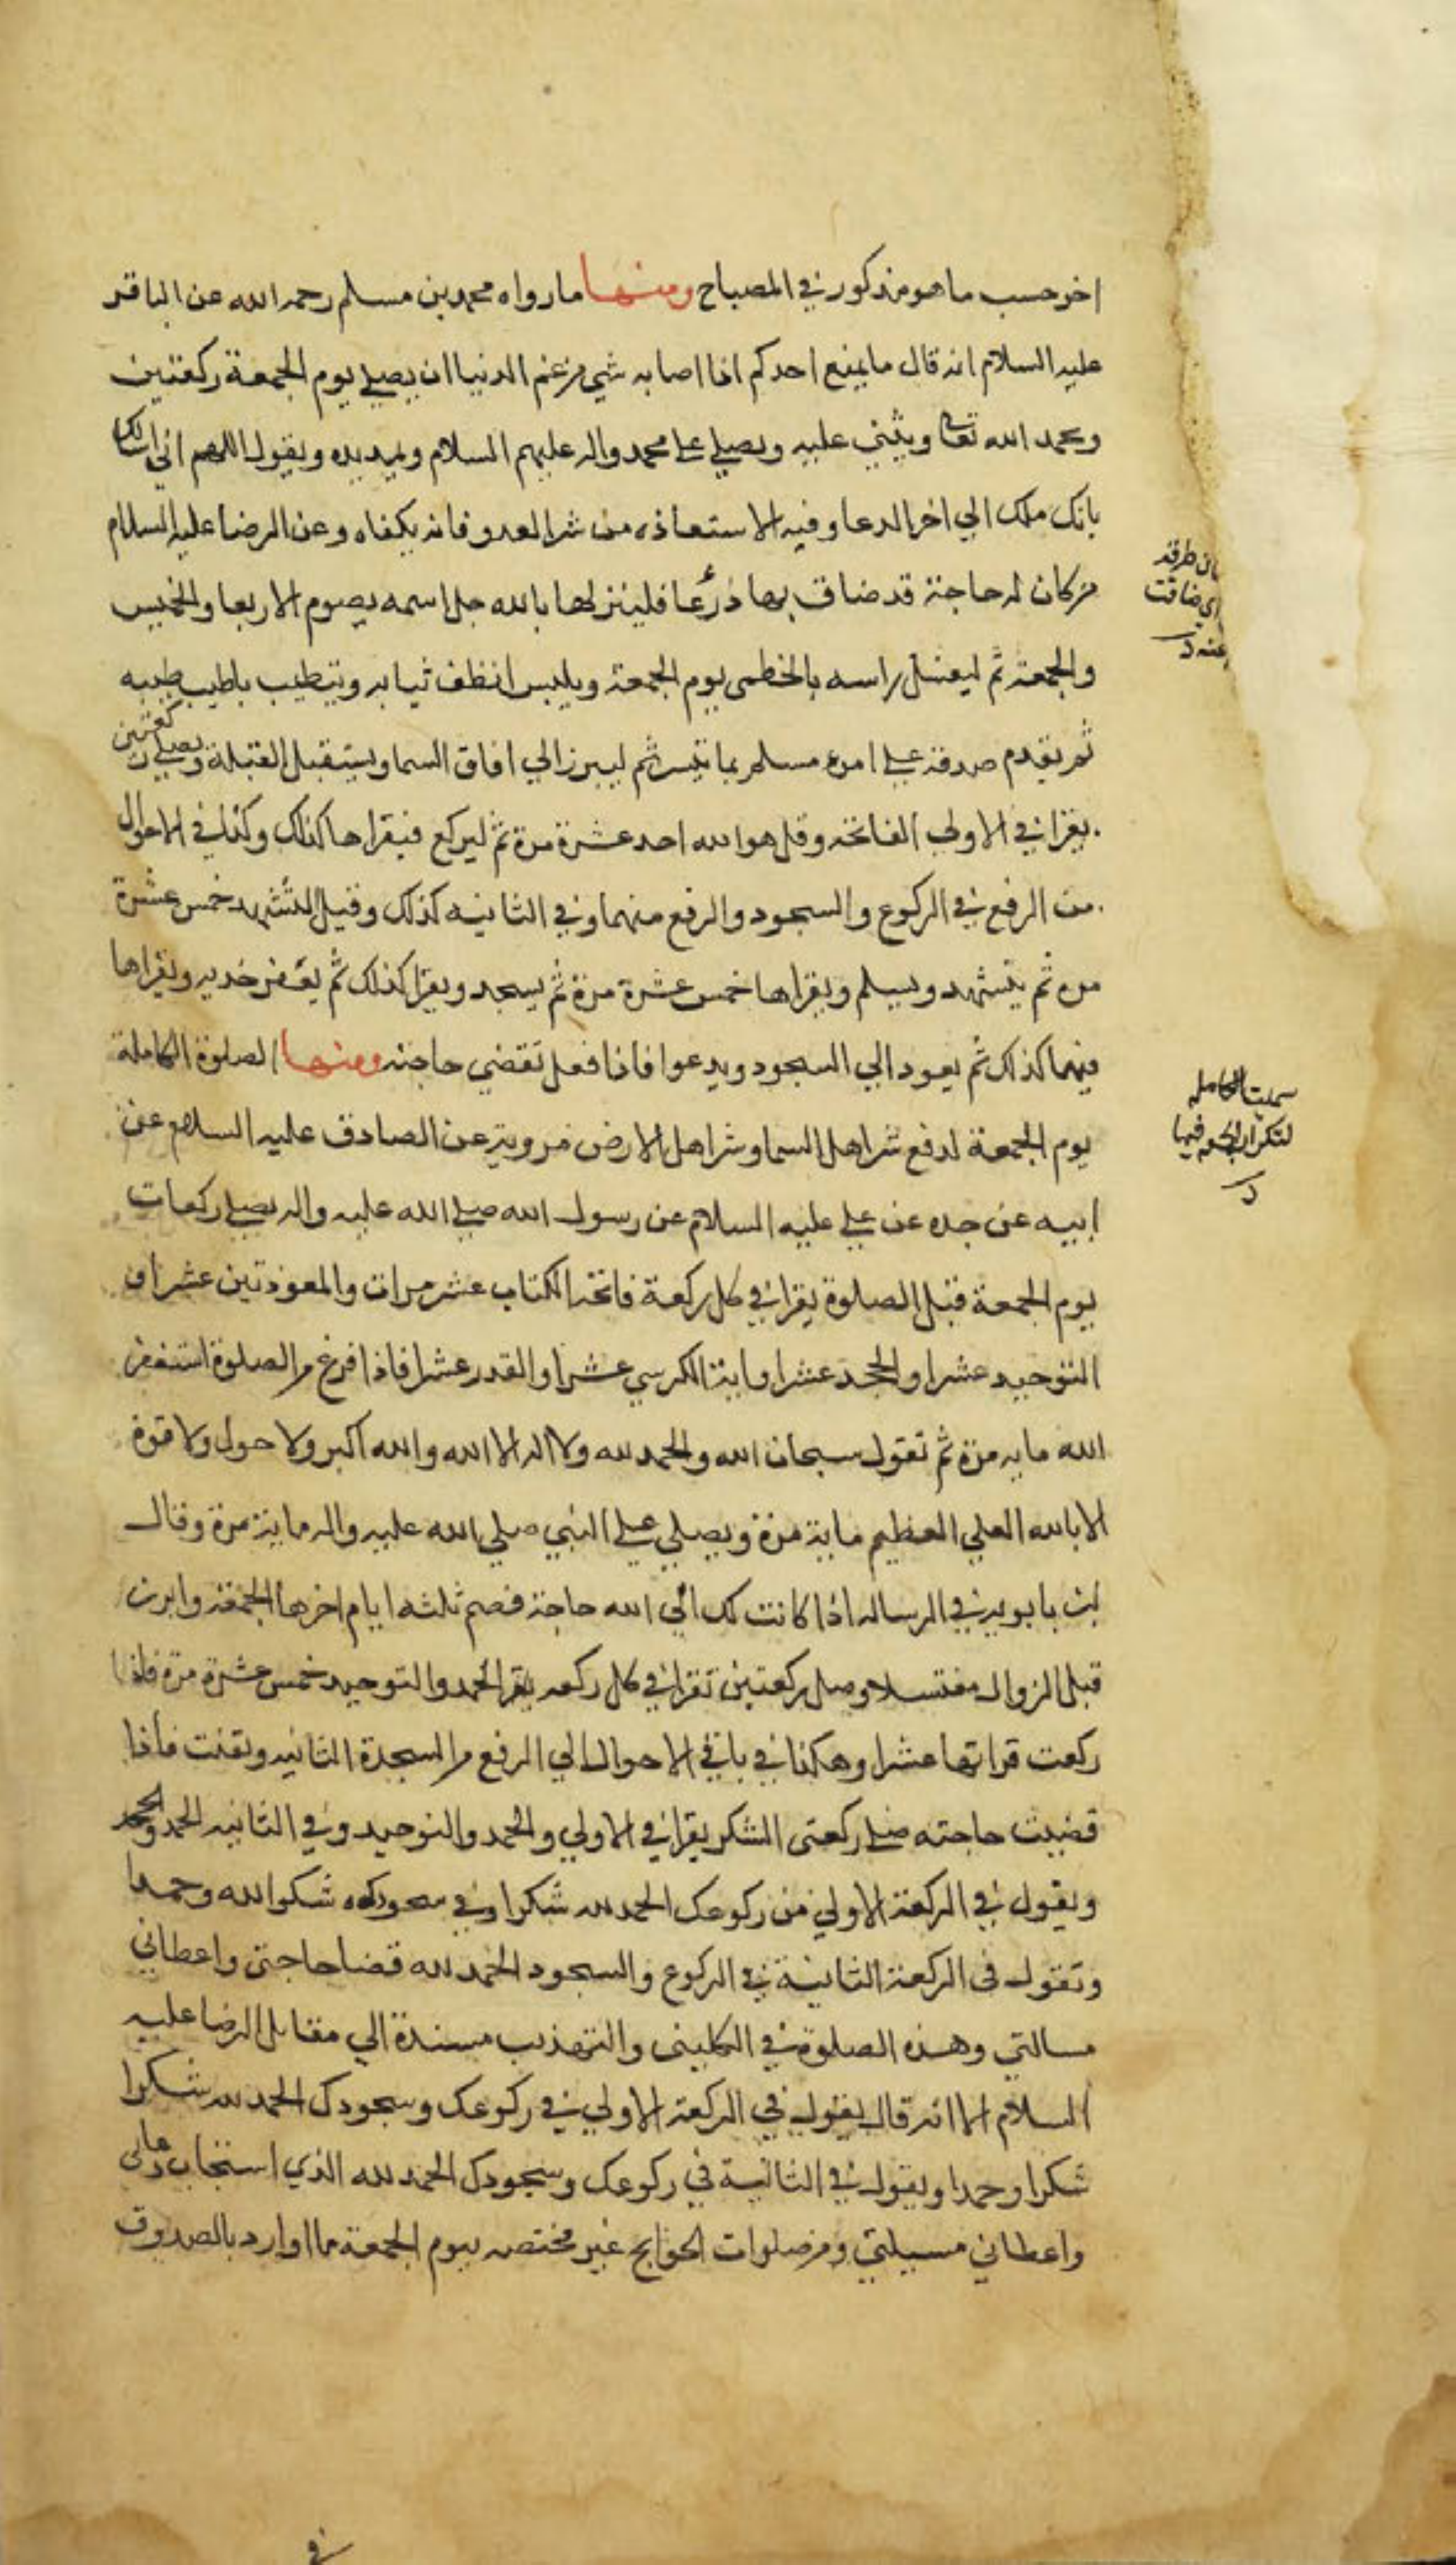 اخر حسب ما هو مذكور في المصباح ومنها ما رواه محمد بن مسلم رحمه الله عن الباقر
عليه السلام انه قال ما يمنع احدكم اذا اصابه شي من غم الدنيا ان يصلي يوم الجمعة ركعتين
ويحمد الله تعالى ويثني عليه ويصلي على محمد واله عليهم السلام ويمد يده ويقول اللهم اني اسالك
بانك ملك الي اخر الدعا وفيه الاستعاذه من شر العدو فانه يكفاه وعن الرضا عليه السلام
من كان له حاجة قد ضاق بها ذرعا فلينزلها بالله جل اسمه يصوم الاربعا والخميس
والجمعة ثم ليغسل راسه بالخطمى يوم الجمعة ويلبس انظف ثيابه ويتطيب باطيب طيبه
ثم يقدم صدقة على امرء مسلم بما تيسر ثم ليبرز الي افاق السما ويستقبل القبلة ويصلي ركعتين
يقرا في الاولي الفاتحه وقل هو الله احد عشرة مرة ثم ليركع فيقراها كذلك وكذا في الاحوال
من الرفع في الركوع والسجود والرفع منهما وفي الثانيه كذلك وقبل التشهد خمس عشرة
مره ثم يتشهد ويسلم ويقراها خمس عشرة مرة ثم يسجد ويقرا كذلك ثم يعفر خديه ويقراها
فيهما كذلك ثم يعود الي السجود ويدعوا فاذا فعل تقضي حاجته ومنها الصلوة الكاملة
يوم الجمعة لدفع شر اهل السما وشر اهل الارض مروية عن الصادق عليه السلام عن
ابيه عن جده عن علي عليه السلام عن رسول الله صلي الله عليه واله يصلي ركعات
يوم الجمعة قبل الصلوة يقرا في كل ركعة فاتحة الكتاب عشر مرات والمعوذتين عشرا و
التوحيد عشرا والجحد عشرا واية الكرسي عشرا والقدر عشرا فاذا فرغ من الصلوة استغفر
الله مايه مرة ثم تقول سبحان الله والحمد لله ولا اله الا الله والله اكبر ولا حول ولا قوة
الا بالله العلي العظيم ماية مرة ويصلي على النبي صلي الله عليه واله ماية مرة وقال
ابن بابويه في الرساله اذا كانت لك الي الله حاجة فصم ثلثه ايام اخرها الجمعة وابرز
قبل الزوال مغتسلا وصل ركعتين تقرا في كل ركعه يقرا الحمد والتوحيد خمس عشرة مرة فاذا
ركعت قراتها عشرا وهكذا في باقي الاحوال الي الرفع من السجدة الثانيه وتقنت فاذا
قضيت حاجته صلي ركعتى الشكر يقرا في الاولي والحمد والتوحيد وفي الثانيه الحمد والجحد
ويقول في الركعة الاولي من ركوعك الحمد لله شكرا وفي سجودك شكرا لله وحمدا
وتقول فى الركعة الثانية في الركوع والسجود الحمد لله قضا حاجتى واعطاني
مسالتي وهذه الصلوة في الكلينى والتهذيب مسندة الي مقابل الرضا عليه
السلام الا انه قال يقول في الركعة الاولي في ركوعك وسجودك الحمد لله شكرا
شكرا وحمدا ويقول في الثانية في ركوعك وسجودك الحمد لله الذي استجاب دعائى
واعطاني مسيلتي ومن صلوات الحوايج غير مختصه بيوم الجمعة ما اوارد بالصدوق
في
طرقه
اي ضاقت
عنه
سميت الكامله
لتكرار فيها